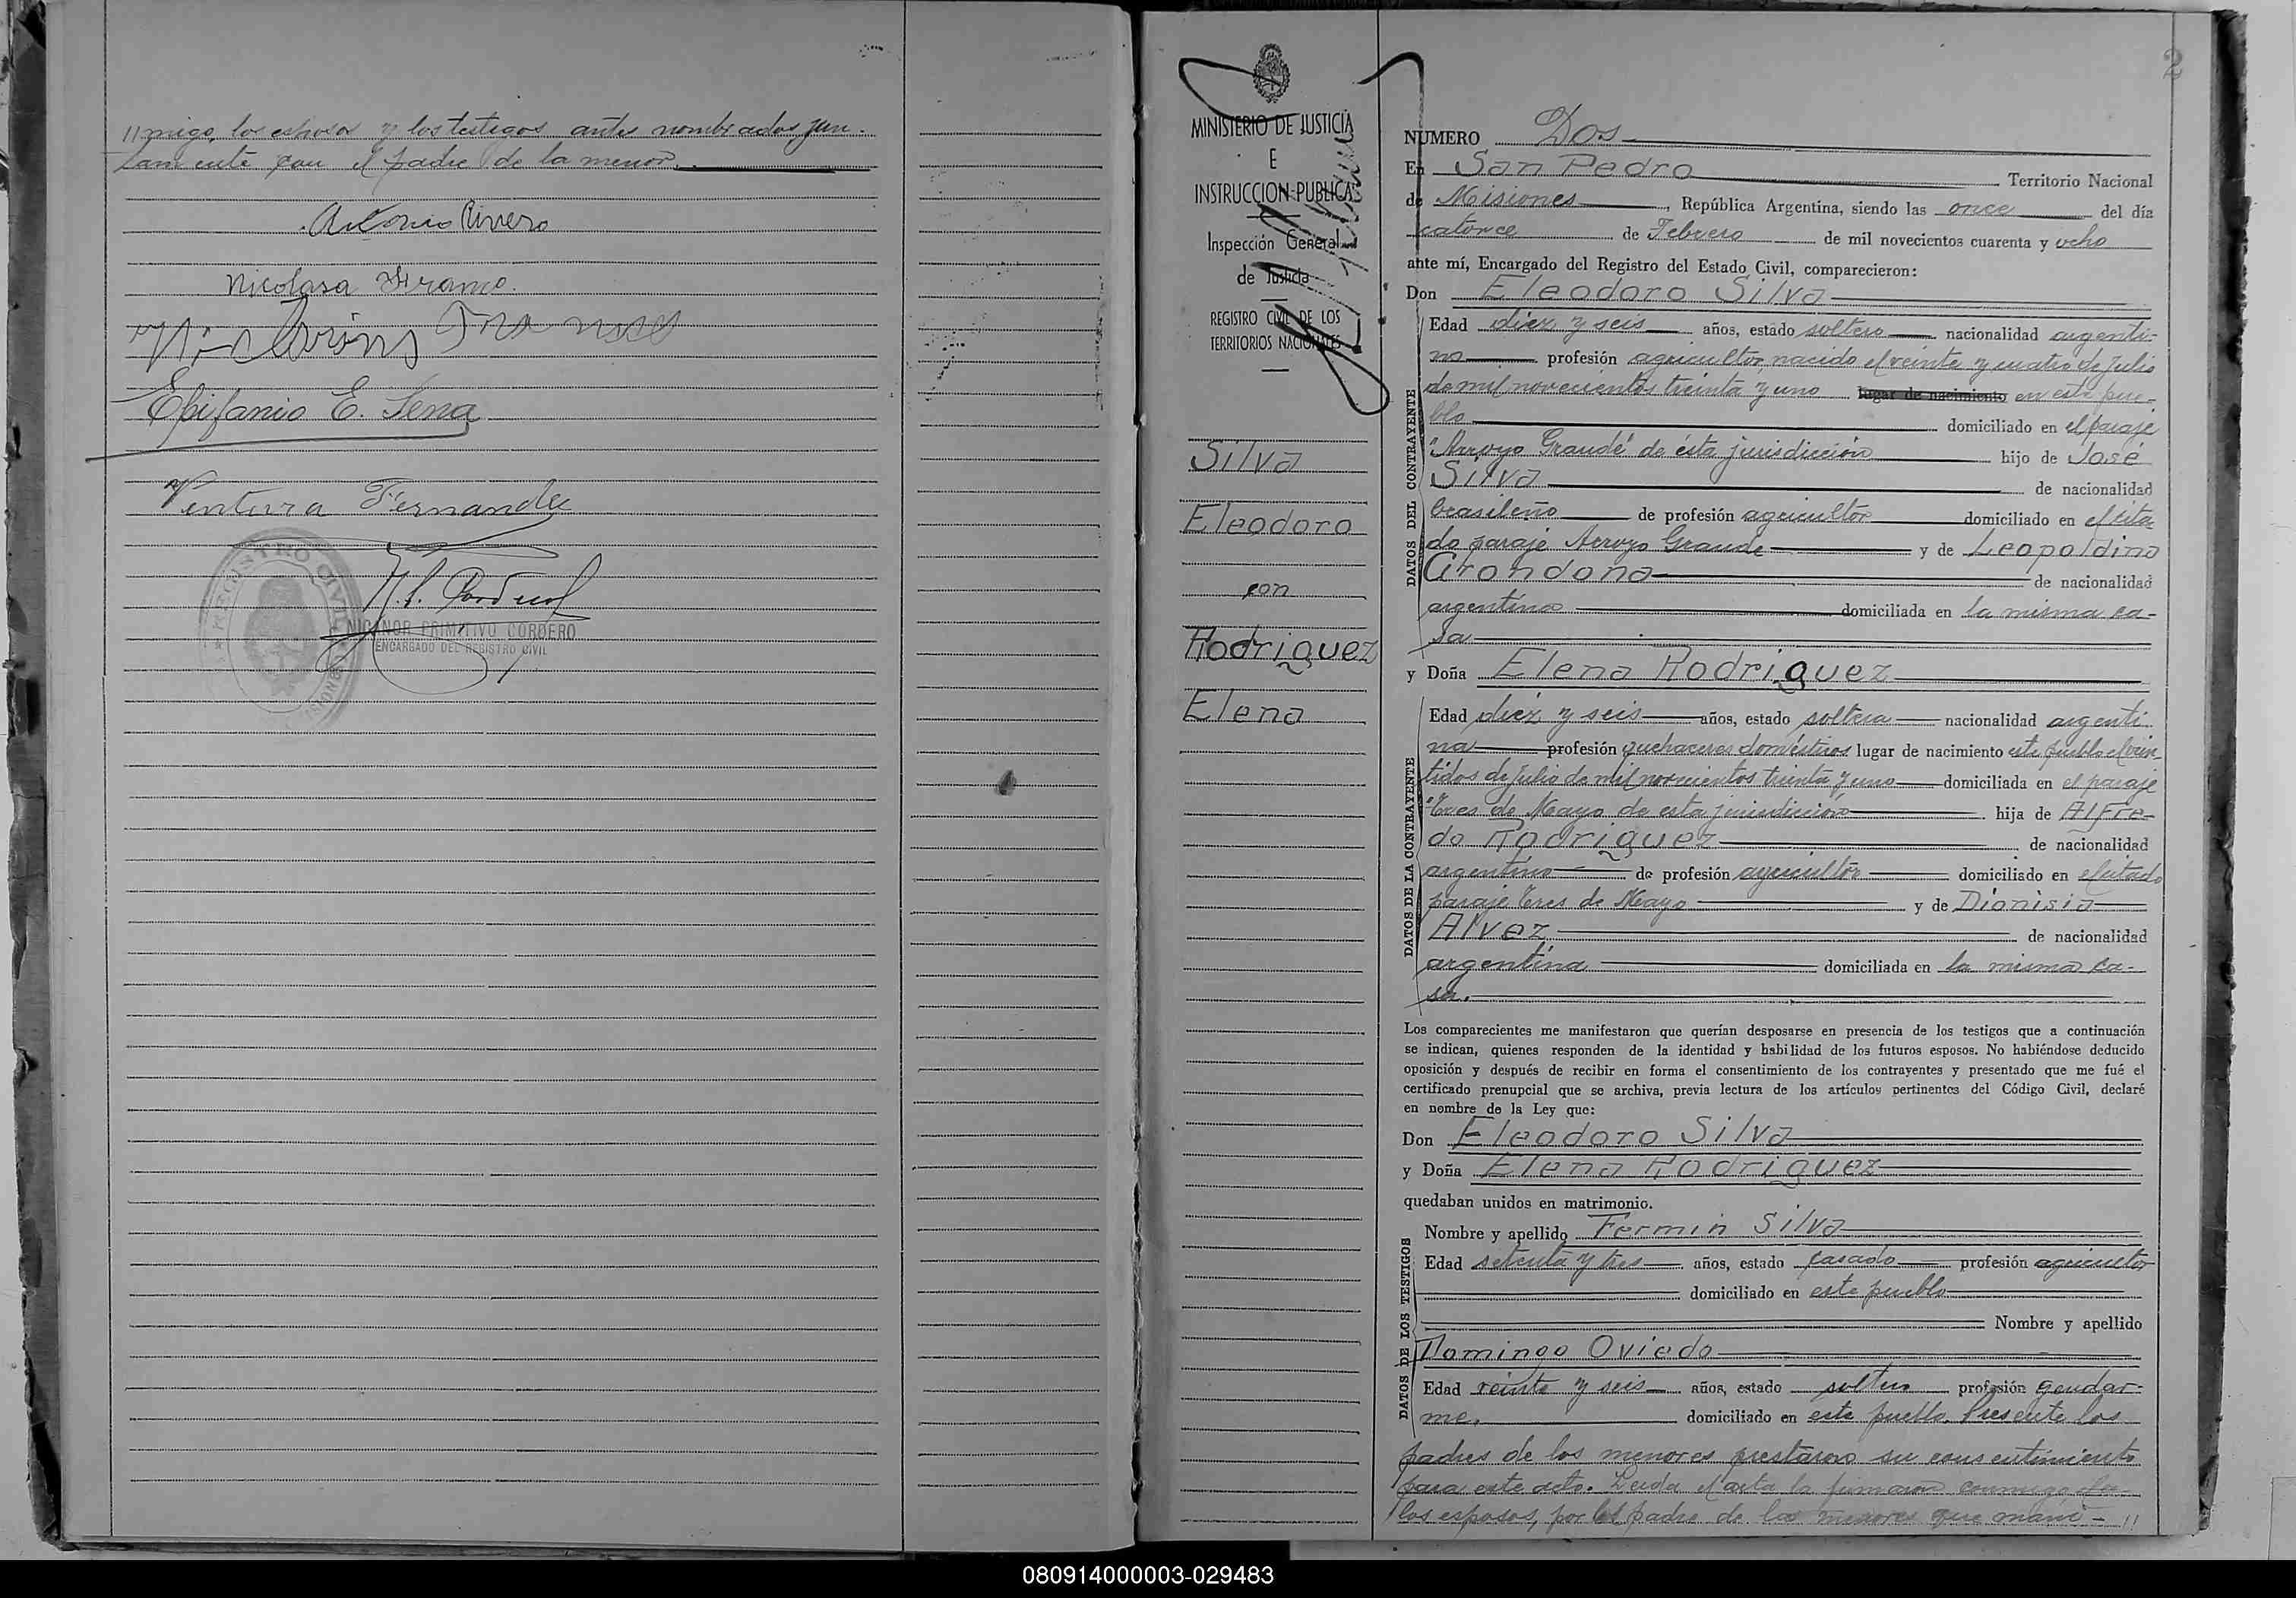 //migo, los esposos y los testigos antes nombrados jun-
tamente con el padre de la menor.
Antonio Rivero
Nicolasa Franco.
Franco
Epifanio E. Sena
Ventura Fernandez
REGISTRO CIVIL
NICANOR PRIMITIVO CORDERO
ENCARGADO DEL REGISTRO CIVIL
MINISTERIO DE JUSTICIA
E
INSTRUCCION PUBLICA
Inspección General
de Justicia
REGISTRO CIVIL DE LOS
TERRITORIOS NACIONALES
Silva
Eleodoro
con
Rodriguez
Elena
2
NUMERO Dos
En San Pedro Territorio Nacional
de Misiones, República Argentina, siendo las once del día
catorce de Febrero de mil novecientos cuarenta y ocho
ante mí, Encargado del Registro del Estado Civil, comparecieron:
Don Eleodoro Silva
DATOS DEL CONTRAYENTE
Edad diez y seis años, estado soltero nacionalidad argenti-
no profesión agricultor, nacido el veinte y cuatro de Julio
de mil novecientos treinta y uno lugar de nacimiento en este pue-
blo domiciliado en el paraje
"Arroyo Grande" de ésta jurisdicción hijo de José
Silva de nacionalidad
brasileño de profesión agricultor domiciliado en el cita
do paraje Arroyo Grande y de Leopoldina
Grondona de nacionalidad
argentina domiciliada en la misma ca-
sa
y Doña Elena Rodriguez
DATOS DE LA CONTRAYENTE
Edad diez y seis años, estado soltera nacionalidad argenti-
na profesión quehaceres domésticos lugar de nacimiento este pueblo el vein-
tidos de Julio de mil novecientos treinta y uno domiciliada en el paraje
"Tres de Mayo de esta jurisdicción hija de Alfre-
do Rodriguez de nacionalidad
argentino de profesión agricultor domiciliado en el citado
paraje Tres de Mayo y de Dionisia
Alvez de nacionalidad
argentina domiciliada en la misma ca-
sa.
Los comparecientes me manifestaron que querían desposarse en presencia de los testigos que a continuación
se indican, quienes responden de la identidad y habilidad de los futuros esposos. No habiéndose deducido
oposición y después de recibir en forma el consentimiento de los contrayentes y presentado que me fué el
certificado prenupcial que se archiva, previa lectura de los artículos pertinentes del Código Civil, declaré
en nombre de la Ley que:
Don Eleodoro Silva
y Doña Elena Rodriguez
quedaban unidos en matrimonio.
DATOS DE LOS TESTIGOS
Nombre y apellido Fermin Silva
Edad setenta y tres años, estado casado profesión agricultor
domiciliado en este pueblo
Nombre y apellido
Domingo Oviedo
Edad veinte y seis años, estado soltero profesión gendar-
me. domiciliado en este pueblo. Presente los
padres de los menores prestaron su consentimiento
para este acto. Leida el acta la firmaron conmigo
los esposos, por los padres de los menores que mani- //
080914000003-029483